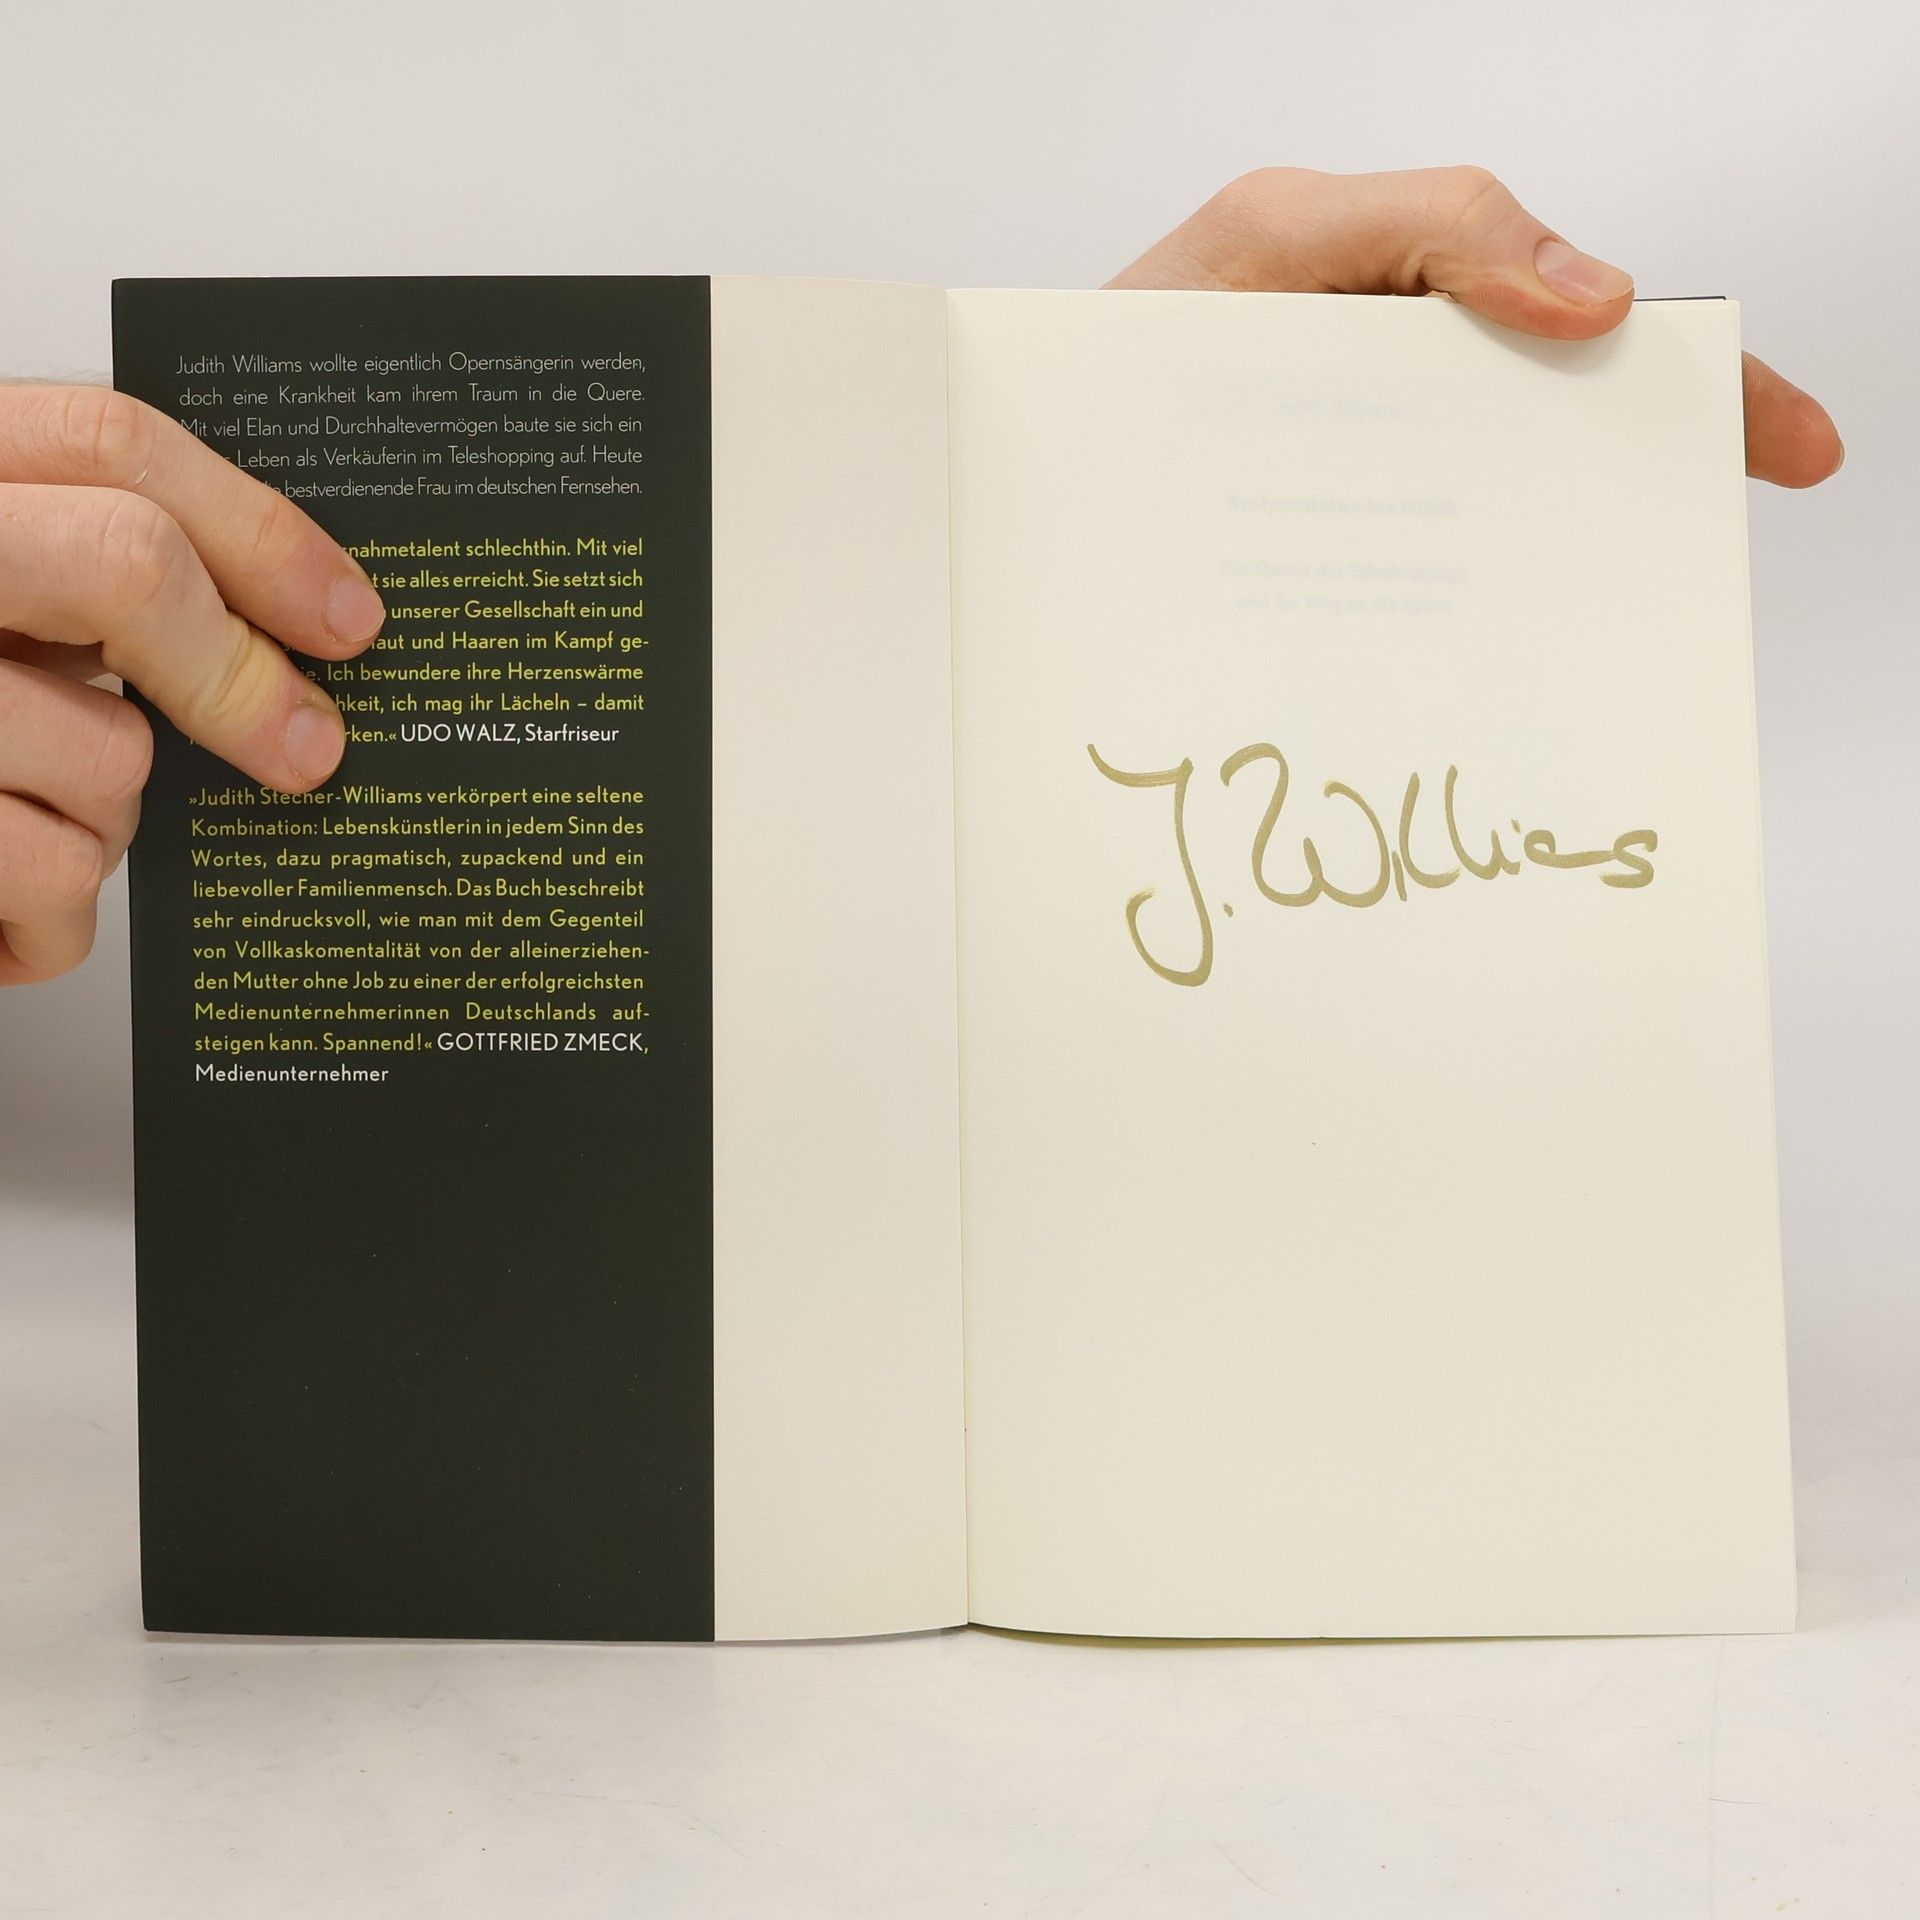 Judith Williams wollte eigentlich Opernsängerin werden,
doch eine Krankheit kam ihrem Traum in die Quere.
Mit viel Elan und Durchhaltevermögen baute sie sich ein
Leben als Verkäuferin im Teleshopping auf. Heute
bestverdienende Frau im deutschen Fernsehen.
schlechthin. Mit viel
sie alles erreicht. Sie setzt sich
unserer Gesellschaft ein und
und Haaren im Kampf ge-
Ich bewundere ihre Herzenswärme
ich mag ihr Lächeln – damit
UDO WALZ, Starfriseur
»Judith Stecher-Williams verkörpert eine seltene
Kombination: Lebenskünstlerin in jedem Sinn des
Wortes, dazu pragmatisch, zupackend und ein
liebevoller Familienmensch. Das Buch beschreibt
sehr eindrucksvoll, wie man mit dem Gegenteil
von Vollkaskomentalität von der alleinerziehen-
den Mutter ohne Job zu einer der erfolgreichsten
Medienunternehmerinnen Deutschlands auf-
steigen kann. Spannend!« GOTTFRIED ZMECK,
Medienunternehmer
Judith Williams
Stolpersteine ins Glück
Die Queen des Teleshoppings
und ihr Weg an die Spitze
J. Williams